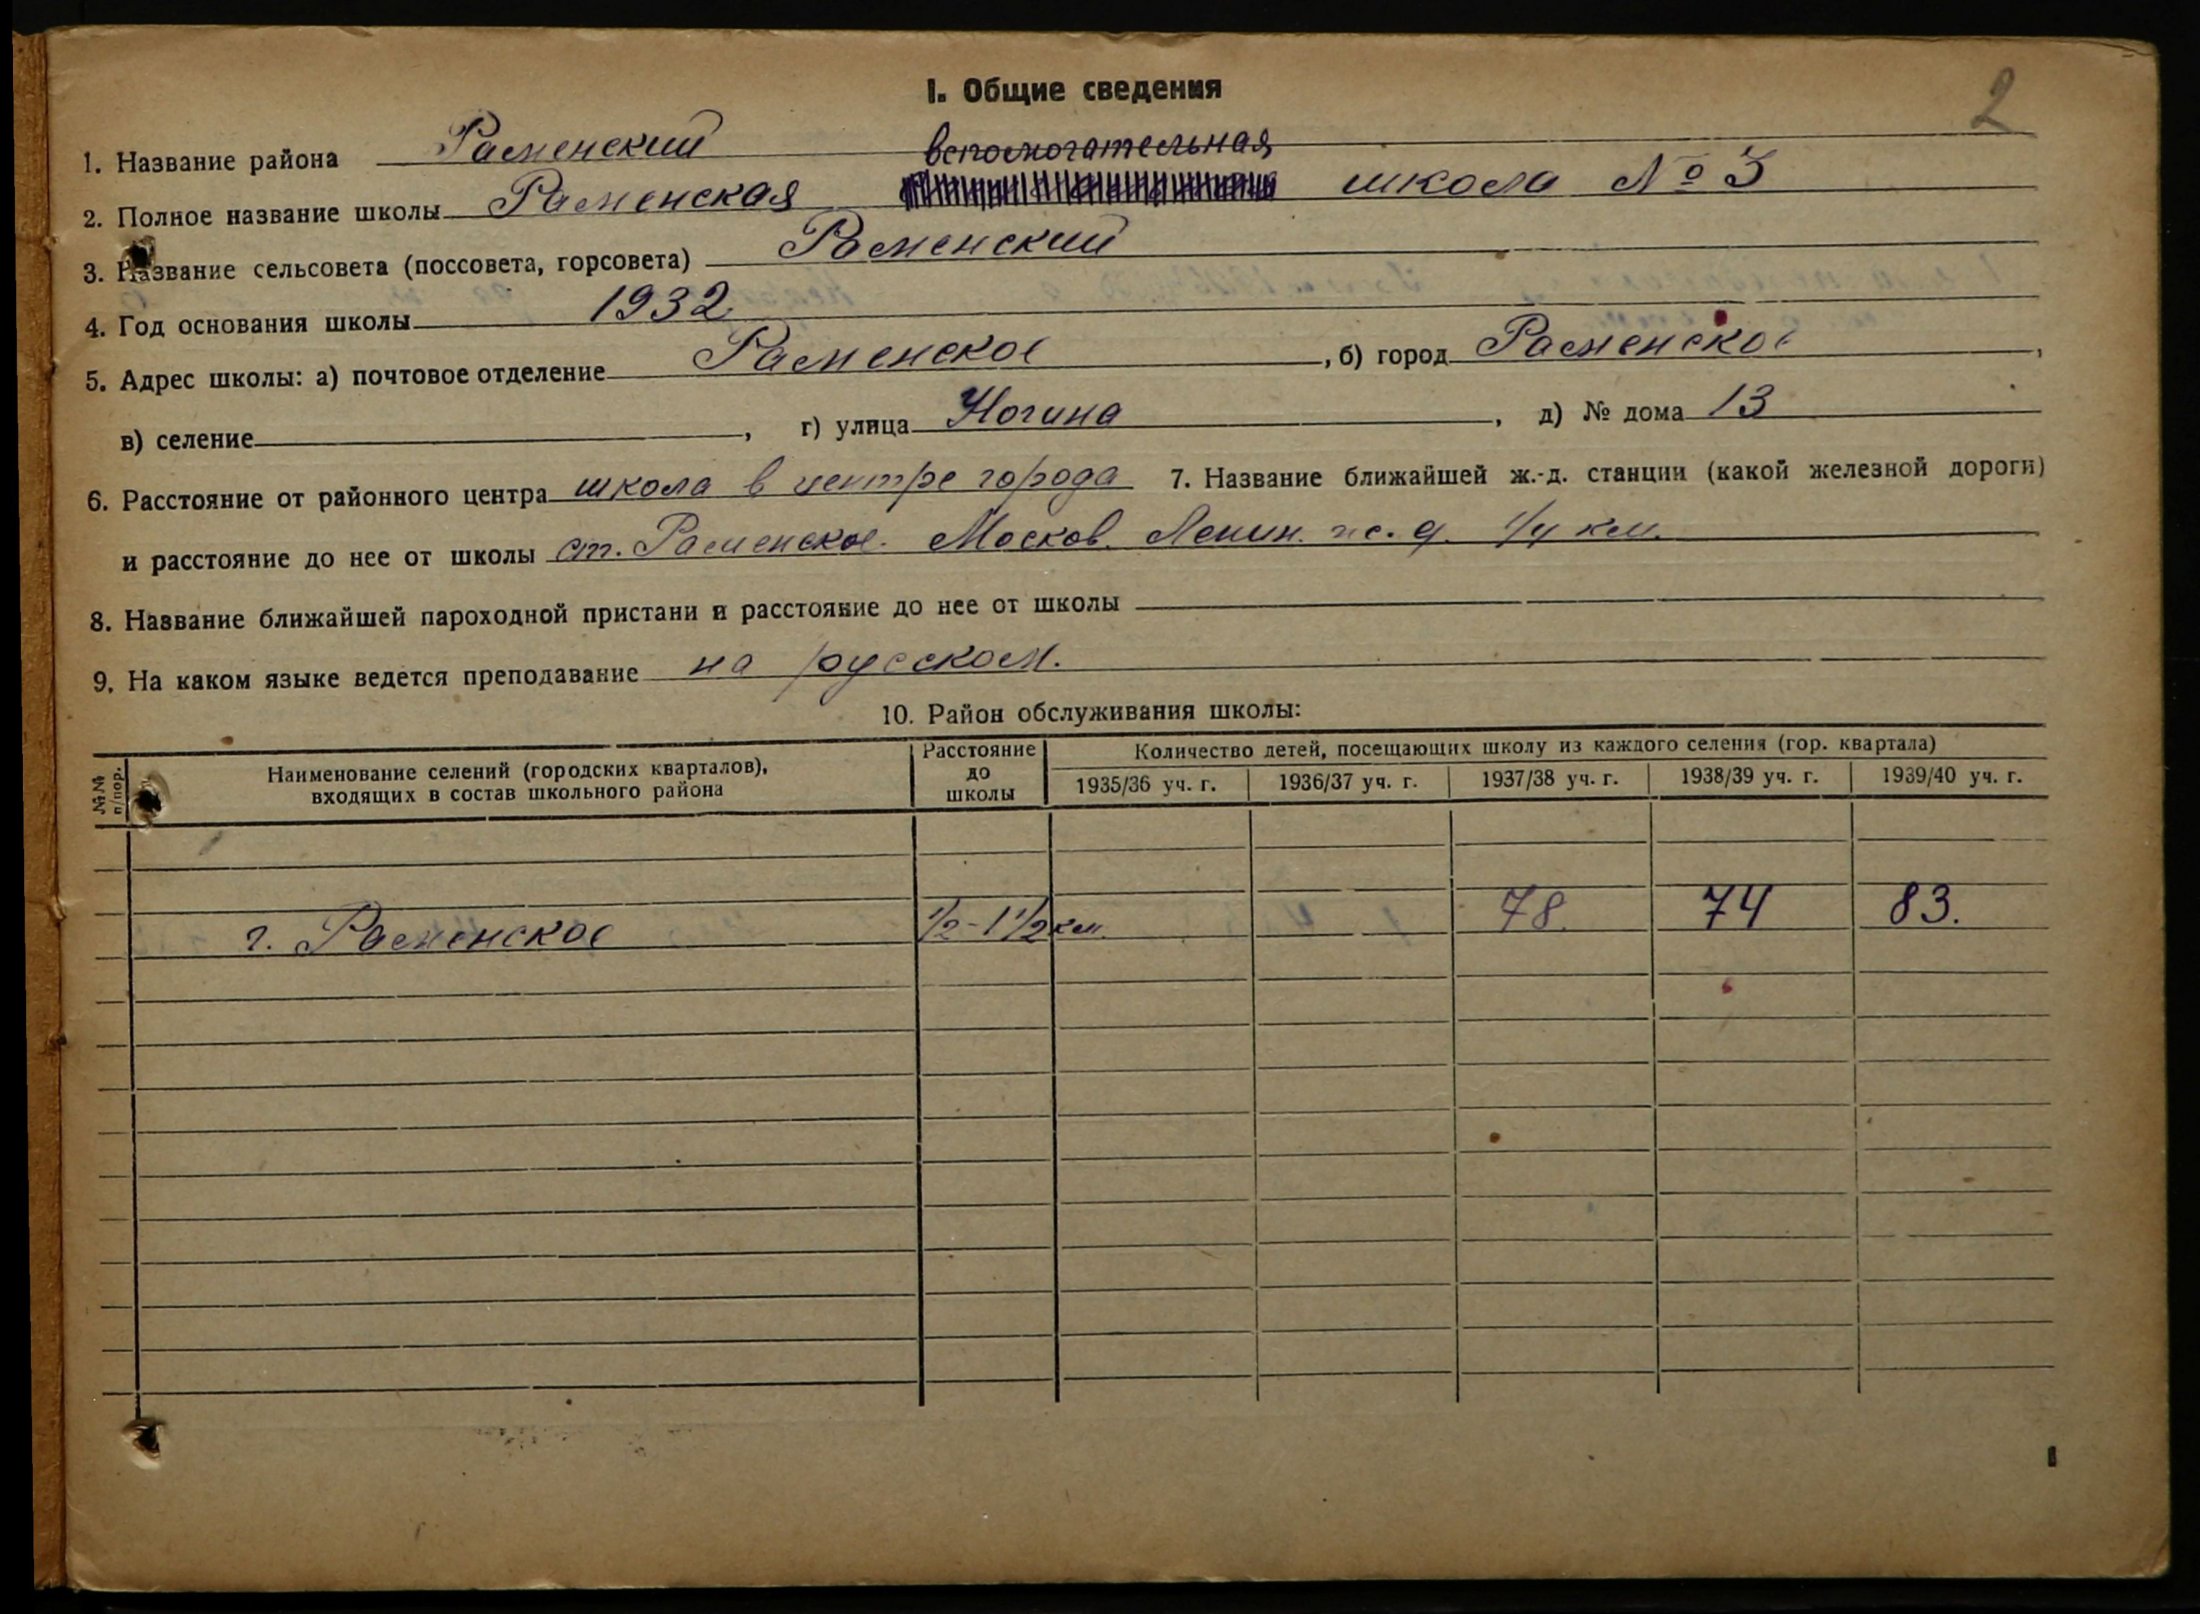 2
I. Общие сведения
1. Название района Раменский
вспомогательная
2. Полное название школы Раменская школа № 3
3. Название сельсовета (поссовета, горсовета) Раменский
4. Год основания школы 1932
5. Адрес школы: а) почтовое отделение Раменское, б) город Раменское,
в) селение, г) улица Ногина, д) № дома 13
6. Расстояние от районного центра школа в центре города 7. Название ближайшей ж.-д. станции (какой железной дороги)
и расстояние до нее от школы ст. Раменское. Москов. Ленин. ж. д. 1/4 км.
8. Название ближайшей пароходной пристани и расстояние до нее от школы
9. На каком языке ведется преподавание на русском.
10. Район обслуживания школы:
№№ п/пор.
Наименование селений (городских кварталов),
входящих в состав школьного района
Расстояние
до
школы
Количество детей, посещающих школу из каждого селения (гор. квартала)
1935/36 уч. г. 1936/37 уч. г. 1937/38 уч. г. 1938/39 уч. г. 1939/40 уч. г.
г. Раменское 1/2-1 1/2 км. 78. 74 83.
1